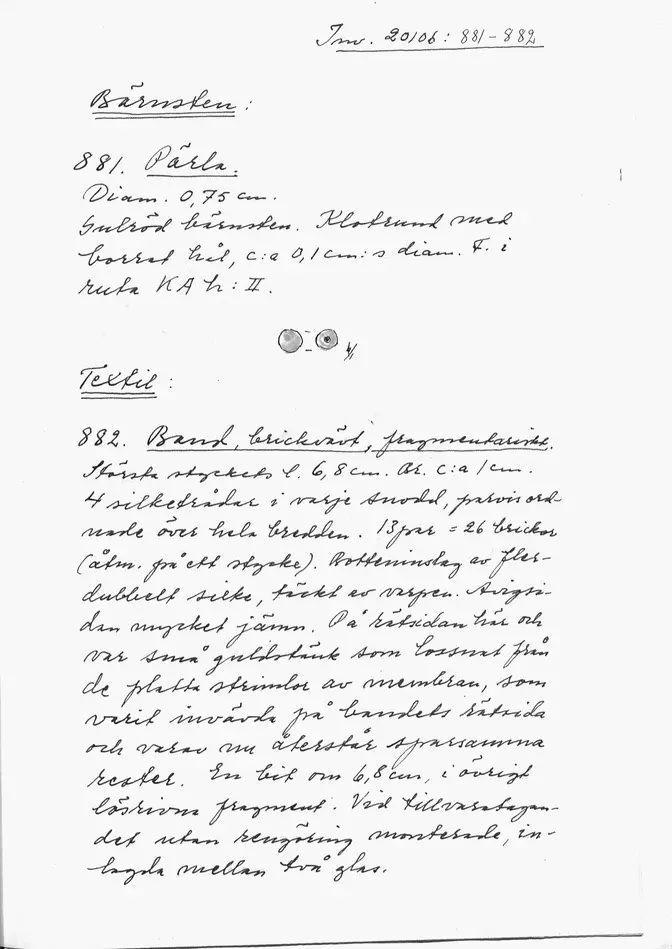 Inv. 20106: 881-882
Bärnsten:
881. Pärla.
Diam. 0,75 cm.
Gulröd bärnsten. Klotrund med
borrat hål, c:a 0,1 cm:s diam. F. i
ruta KA h: II.
1/1
Textil:
882. Band, brickvävt, fragmentariskt.
Största styckets l. 6,8 cm. Br. c:a 1 cm.
4 silketrådar i varje snodd, parvis ord-
nade över hela bredden. 13 par = 26 brickor
(åtm. på ett stycke). Botteninslag av fler-
dubbelt silke, täckt av varpen. Avigsi-
dan mycket jämn. På rätsidan här och
var små guldstänk som lossnat från
de platta strimlor av membran, som
varit invävda på bandets rätsida
och varav nu återstår sparsamma
rester. En bit om 6,8 cm, i övrigt
lösrivna fragment. Vid tillvaratagan-
det utan rengöring monterade, in-
lagda mellan två glas.